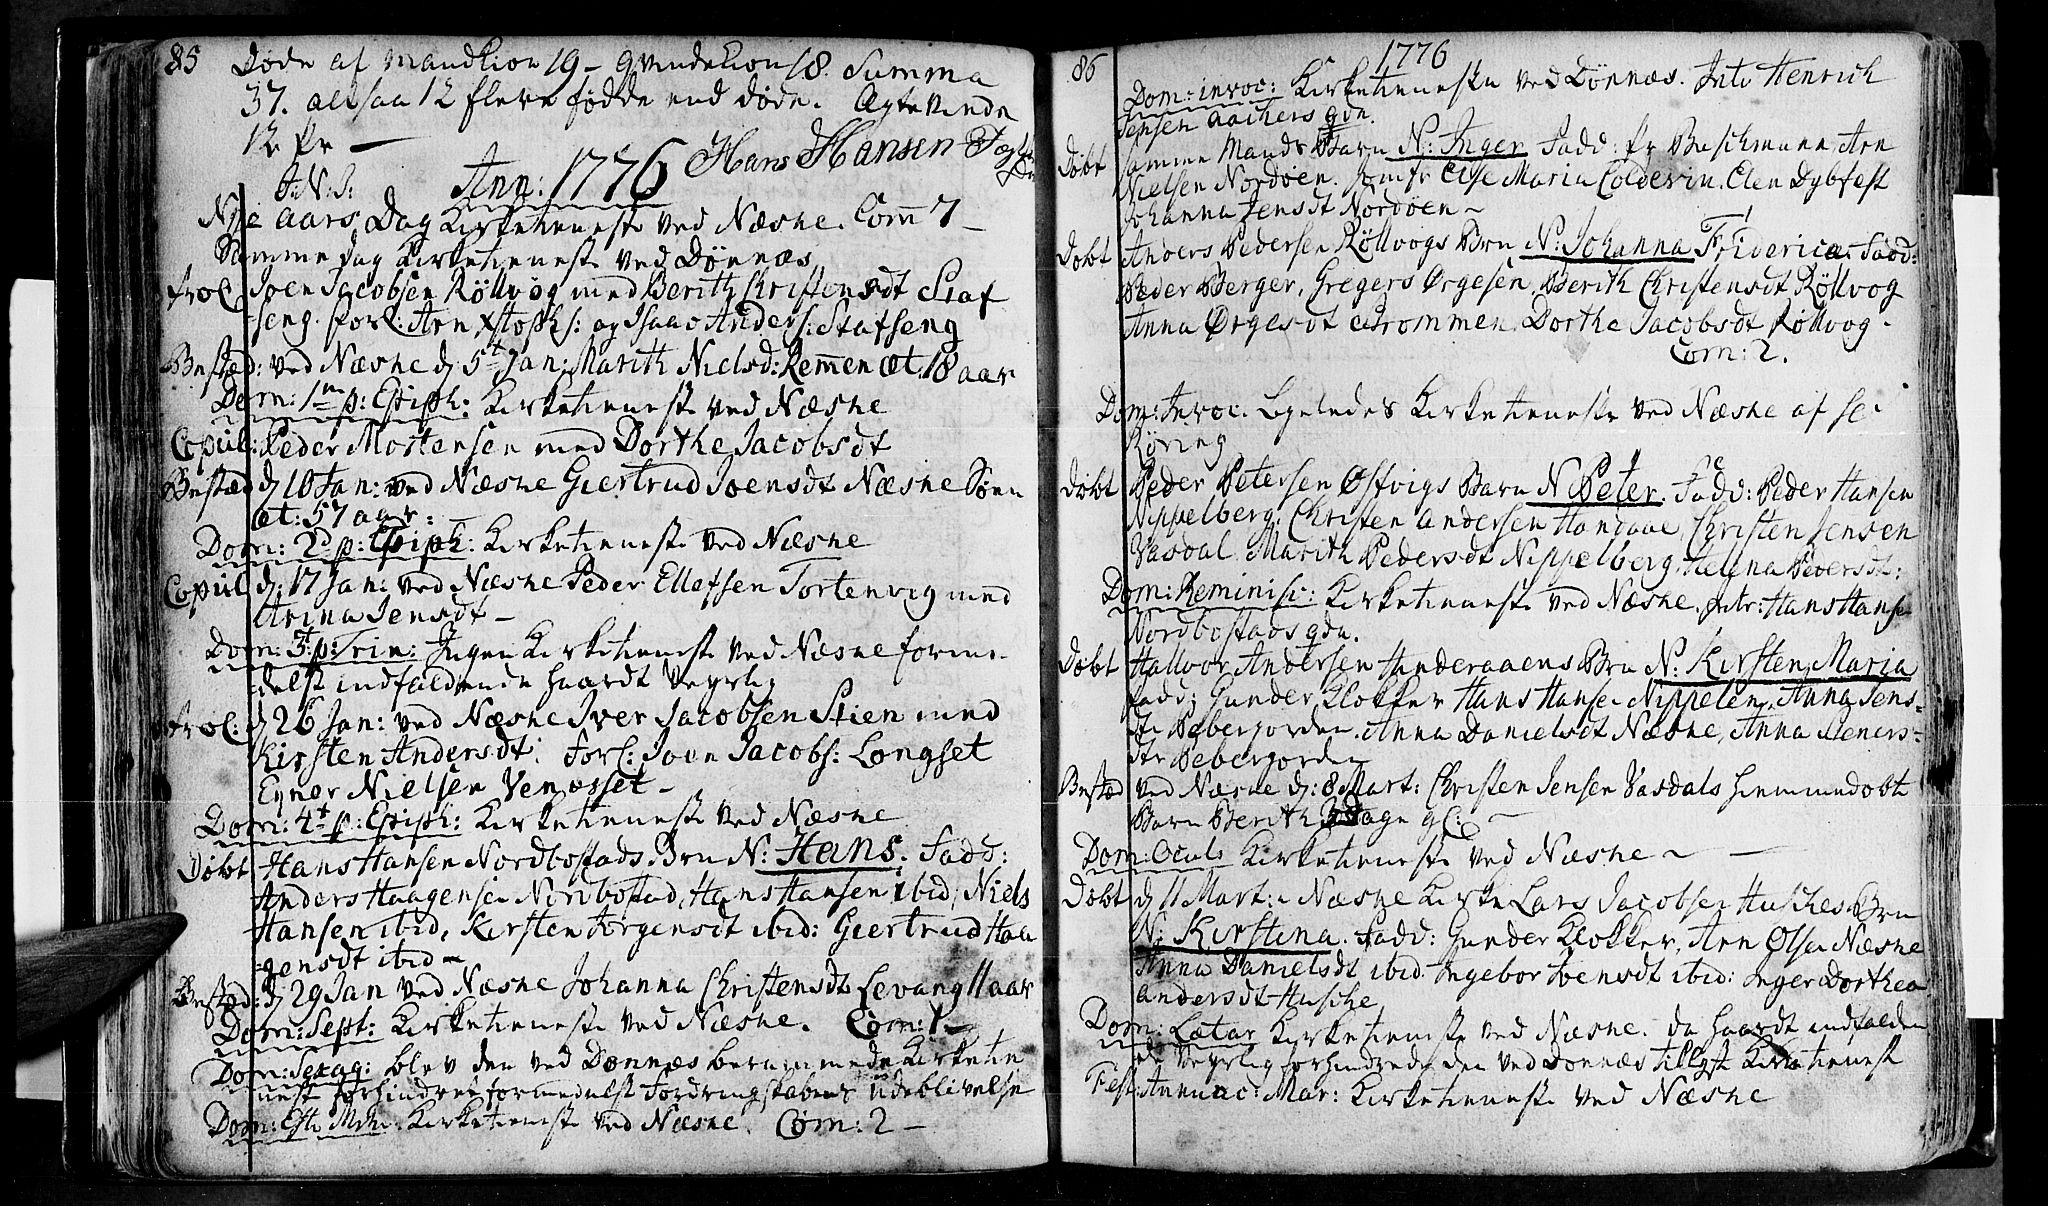 85 Døde af Mandkion 19 – Qvindekion 18. Summa
37. altsaa 12 flere fødde end døde. Ægteviede
12 Pr —
Hans Hansen
J: N: J: Ann: 1776
Nye aars Dag Kirketieneste ved Næsne. Com̄ 7 –
Samme dag Kirketieneste ved Dønnæs
Trol: Joen Jacobsen Röllvog med Berith Christensdt Staf
seng. forl: Arn Xstophs: og Isaac Anders: Stafseng
Bested: ved Næsne d: 5t Jan: Marith Nielsd: Remmen æt. 18 aar
Dom: 1me p: Epiph: Kirketieneste ved Næsne
Copul: Peder Mortensen med Dorthe Jacobsdt
Bested d 10 Jan: ved Næsne Giertrud Joensdt Næsne
æt: 57 aar: –
Dom: 2d p: Epiph: Kirketieneste ved Næsne
Copul d: 17 Jan: ved Næsne Peder Ellefsen Tortenvig med
Arina Jensdt –
Dom: 3t p: Trin: Ingen Kirketieneste ved Næsne forme-
delst indfaldende haardt Veyrlig
Trol: d 26 Jan: ved Næsne Iver Jacobsen Stien med
Kirsten Andersdt: forl: Joen Jacobs: Longset
Eyner Nielsen Venæsset –
Dom: 4t p: Epiph: Kirketieneste ved Næsne
Døbt Hans Hansen Nordbostads Brn N: Hans. Fadd:
Anders Haagense Nordbostad, Hans Hansen ibid, Niels
Hansen ibid, Kirsten Jørgensdt ibid: Giertrud Haa
gensdt ibid –
Bested: d 29 Jan ved Næsne Johanna Christensdt Levang 11 aar
Dom: Sept: Kirketieneste ved Næsne. Com: 1 –
Dom: Sexag: blev den ved Dønnæs berammede Kirketie
nest forhindret formedelst Fordringskabets Udeblivelse
Dom: Esto Mihi. Kirketieneste ved Næsne. Com: 2 –
86 1776
Dom: invoc: Kirketieneste ved Dönnæs. Intr Henrich
Jepsen Aachers qde.
Døbt samme Mands Barn N: Inger Fadd: fr Buschmann, Arn
Nielsen Nordöen. Jomfr Else Maria Coldevin. Elen Dybfest
Johanna Jensdt Nordöen –
Døbt Anders Pedersen Röllvogs Brn N: Johanna Friderica. Fadd:
Peder Berger, Gregers Ørgesen, Berith Christensdt Röllvog
Anna Ørgesdt Brommen. Dorthe Jacobsdt Röllvog.
Com: 2.
Dom: Invoc. Ligeledes Kirketieneste ved Næsne af
Röring
Døbt Peder Petersen Østvigs Barn N Peter. Fadd: Peder Hansen
Nippelberg. Christen Andersen Handaae Christen Jensen
Vasdal. Marith Pedersdt Nippelberg, Helena Pedersdt:
Dom: Reminisc: Kirketieneste ved Næsne. Intr: Hans Hanse
Nordbostads qde.
Døbt Hallvor Andersen Hinderaaens Brn N: Kirsten Maria
fadd; Gunder Klokker Hans Hanse Nippelen, Anna Jens-
dtr Bebergorden. Anna Danielsdt Næsne, Anna
dtr Bebergorden
Bested ved Næsne d: 8 Mart: Christen Jensen Vasdals hiemmedøbte
Barn Berith 3 Dage gl: –
Dom: Oculi Kirketieneste ved Næsne –
Døbt d 11 Mart: i Næsne Kirke Lars Jacobsen Husbyes Brn
N: Kirstina. Fadd: Gunder Klokker, Arn Olse Næsne
Anna Danielsdt ibid. Ingebor Ivensdt ibid: Inger Dorthea
Andersdt Husbye
Dom: Lætar Kirketieneste ved Næsne. da haardt indfalden
de Veyrlig forhindrede den ved Dönnæs tillyst Kirketienest
Fest: Annunc: Mar: Kirketieneste ved Næsne